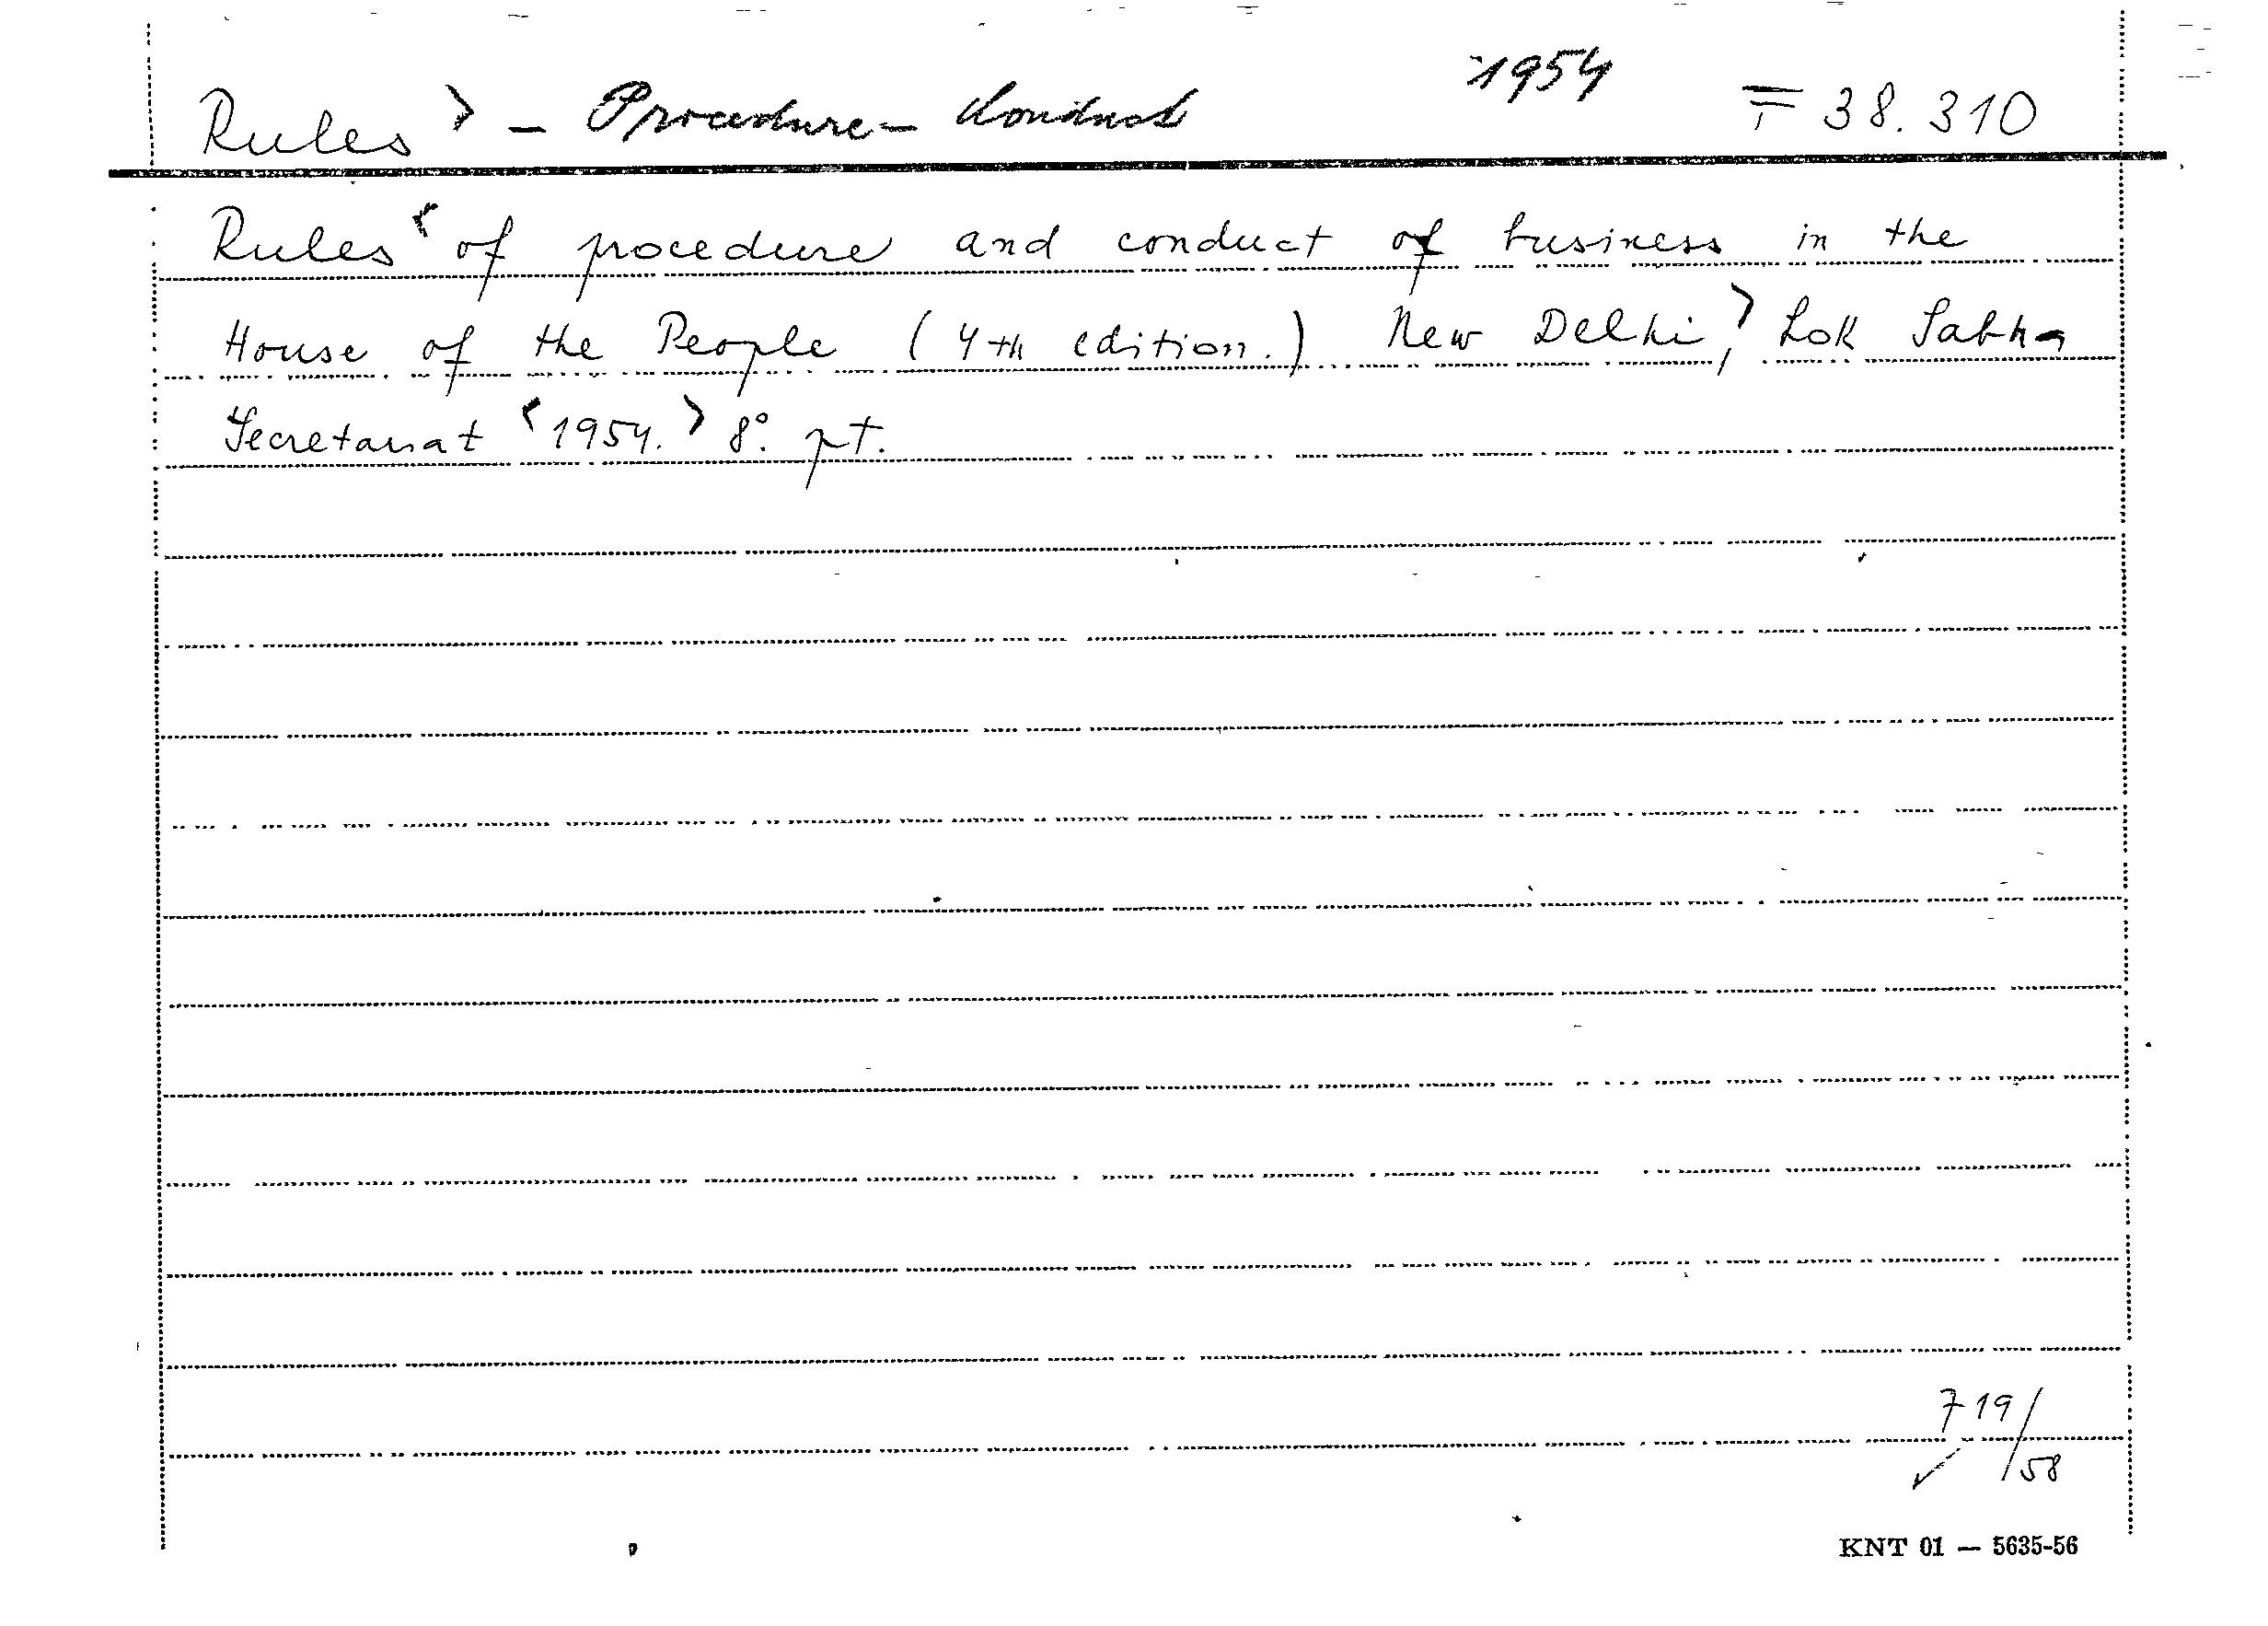 Rules > - Procedure - Conduct 1954 = 38.310
Rules < of procedure and conduct of business in the
House of the People (4th edition.) New Delhi, > Lok Sabha
Secretariat < 1954. > 8°. pt.
719/
✓ /58
KNT 01 — 5635-56